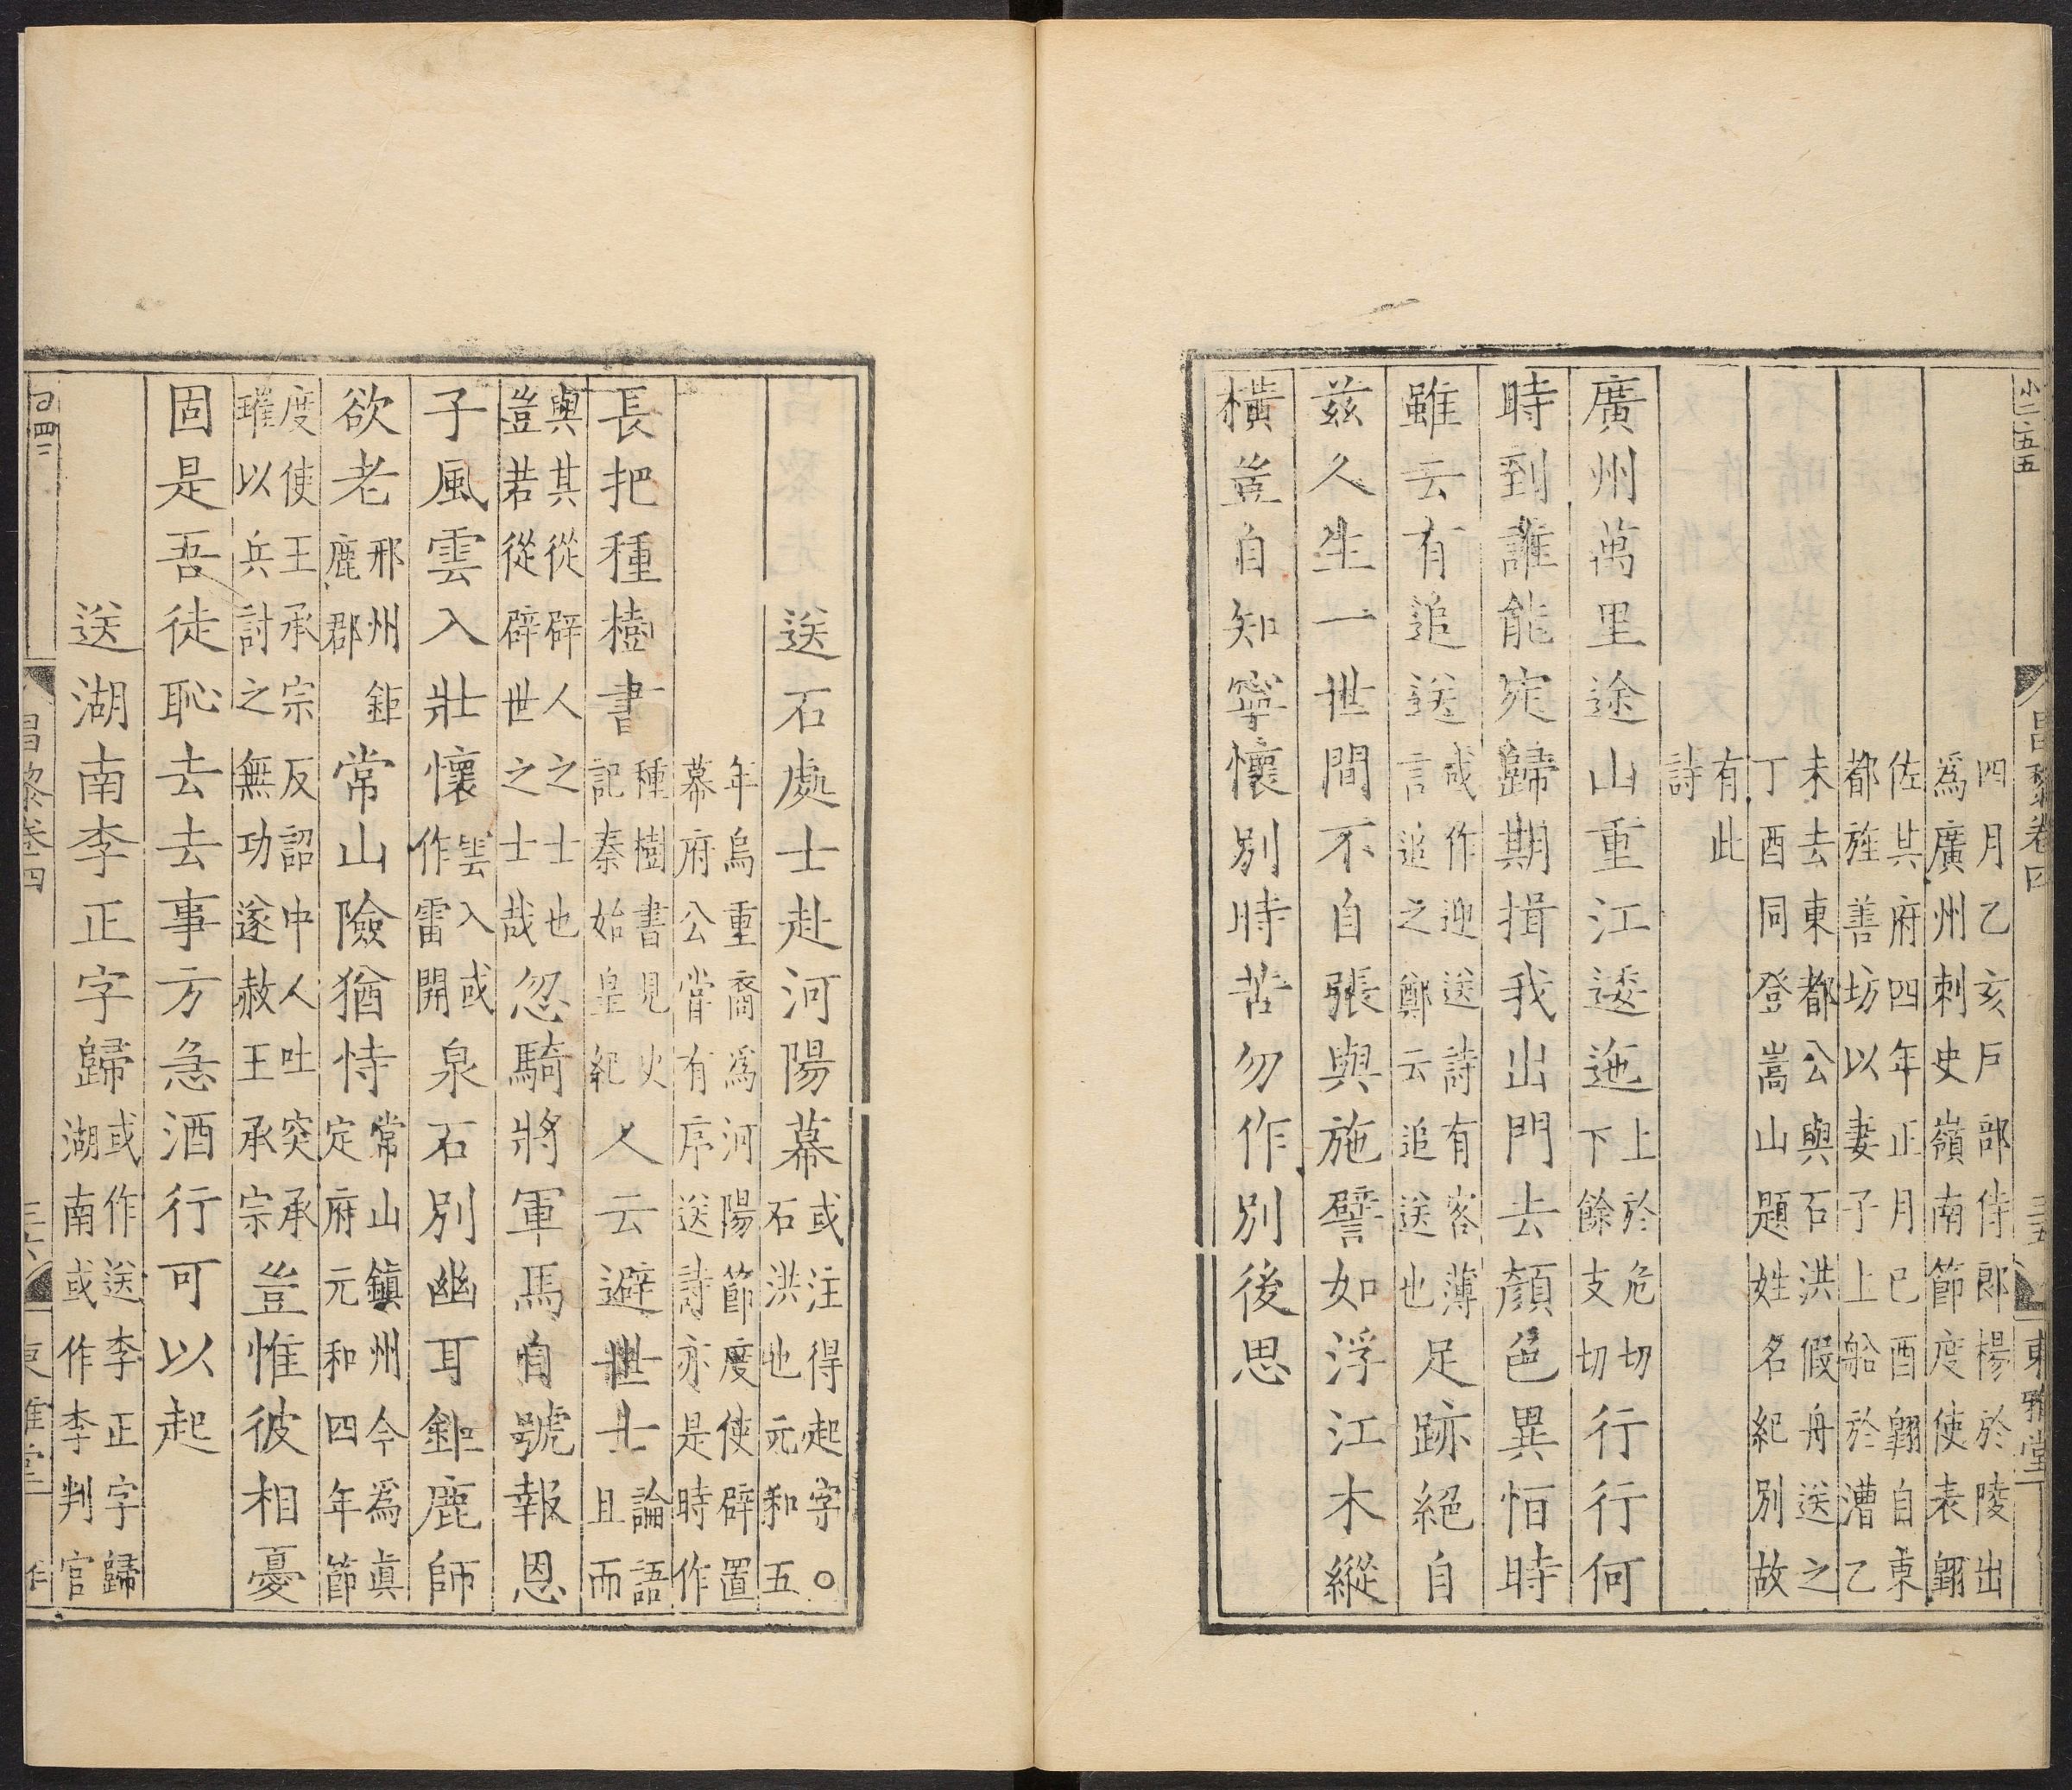 小二五五
昌黎卷四
三五
東雅堂
四月乙亥戶部侍郎楊於陵出
爲廣州刺史嶺南節度使表翺
佐其府四年正月己酉翺自東
都旌善坊以妻子上船於漕乙
未去東都公與石洪假舟送之
丁酉同登嵩山題姓名紀別故
有此
詩
廣州萬里途山重江逶迤上於危切下餘支切行行何
時到誰能定歸期揖我出門去顏色異恒時
雖云有追送或作迎送詩有客薄言追之鄭云追送也足跡絕自
茲人生一世間不自張與施譬如浮江木縱
橫豈自知寧懷別時苦勿作別後思
送石處士赴河陽幕或注得起字〇石洪也元和五
年烏重裔爲河陽節度使辟置
幕府公嘗有序送詩亦是時作
長把種樹書種樹書見史記秦始皇紀人云避世士論語且而
與其從辟人之士也豈若從辟世之士哉忽騎將軍馬自號報恩
子風雲入壯懷雲入或作雷開泉石別幽耳鉅鹿師
欲老邢州鉅鹿郡常山險猶恃常山鎮州今爲眞定府元和四年節
度使王承宗反詔中人吐突承璀以兵討之無功遂赦王承宗豈惟彼相憂
固是吾徒恥去去事方急酒行可以起
送湖南李正字歸或作送李正字歸湖南或作李判官
昌黎卷四
三六
東雅堂